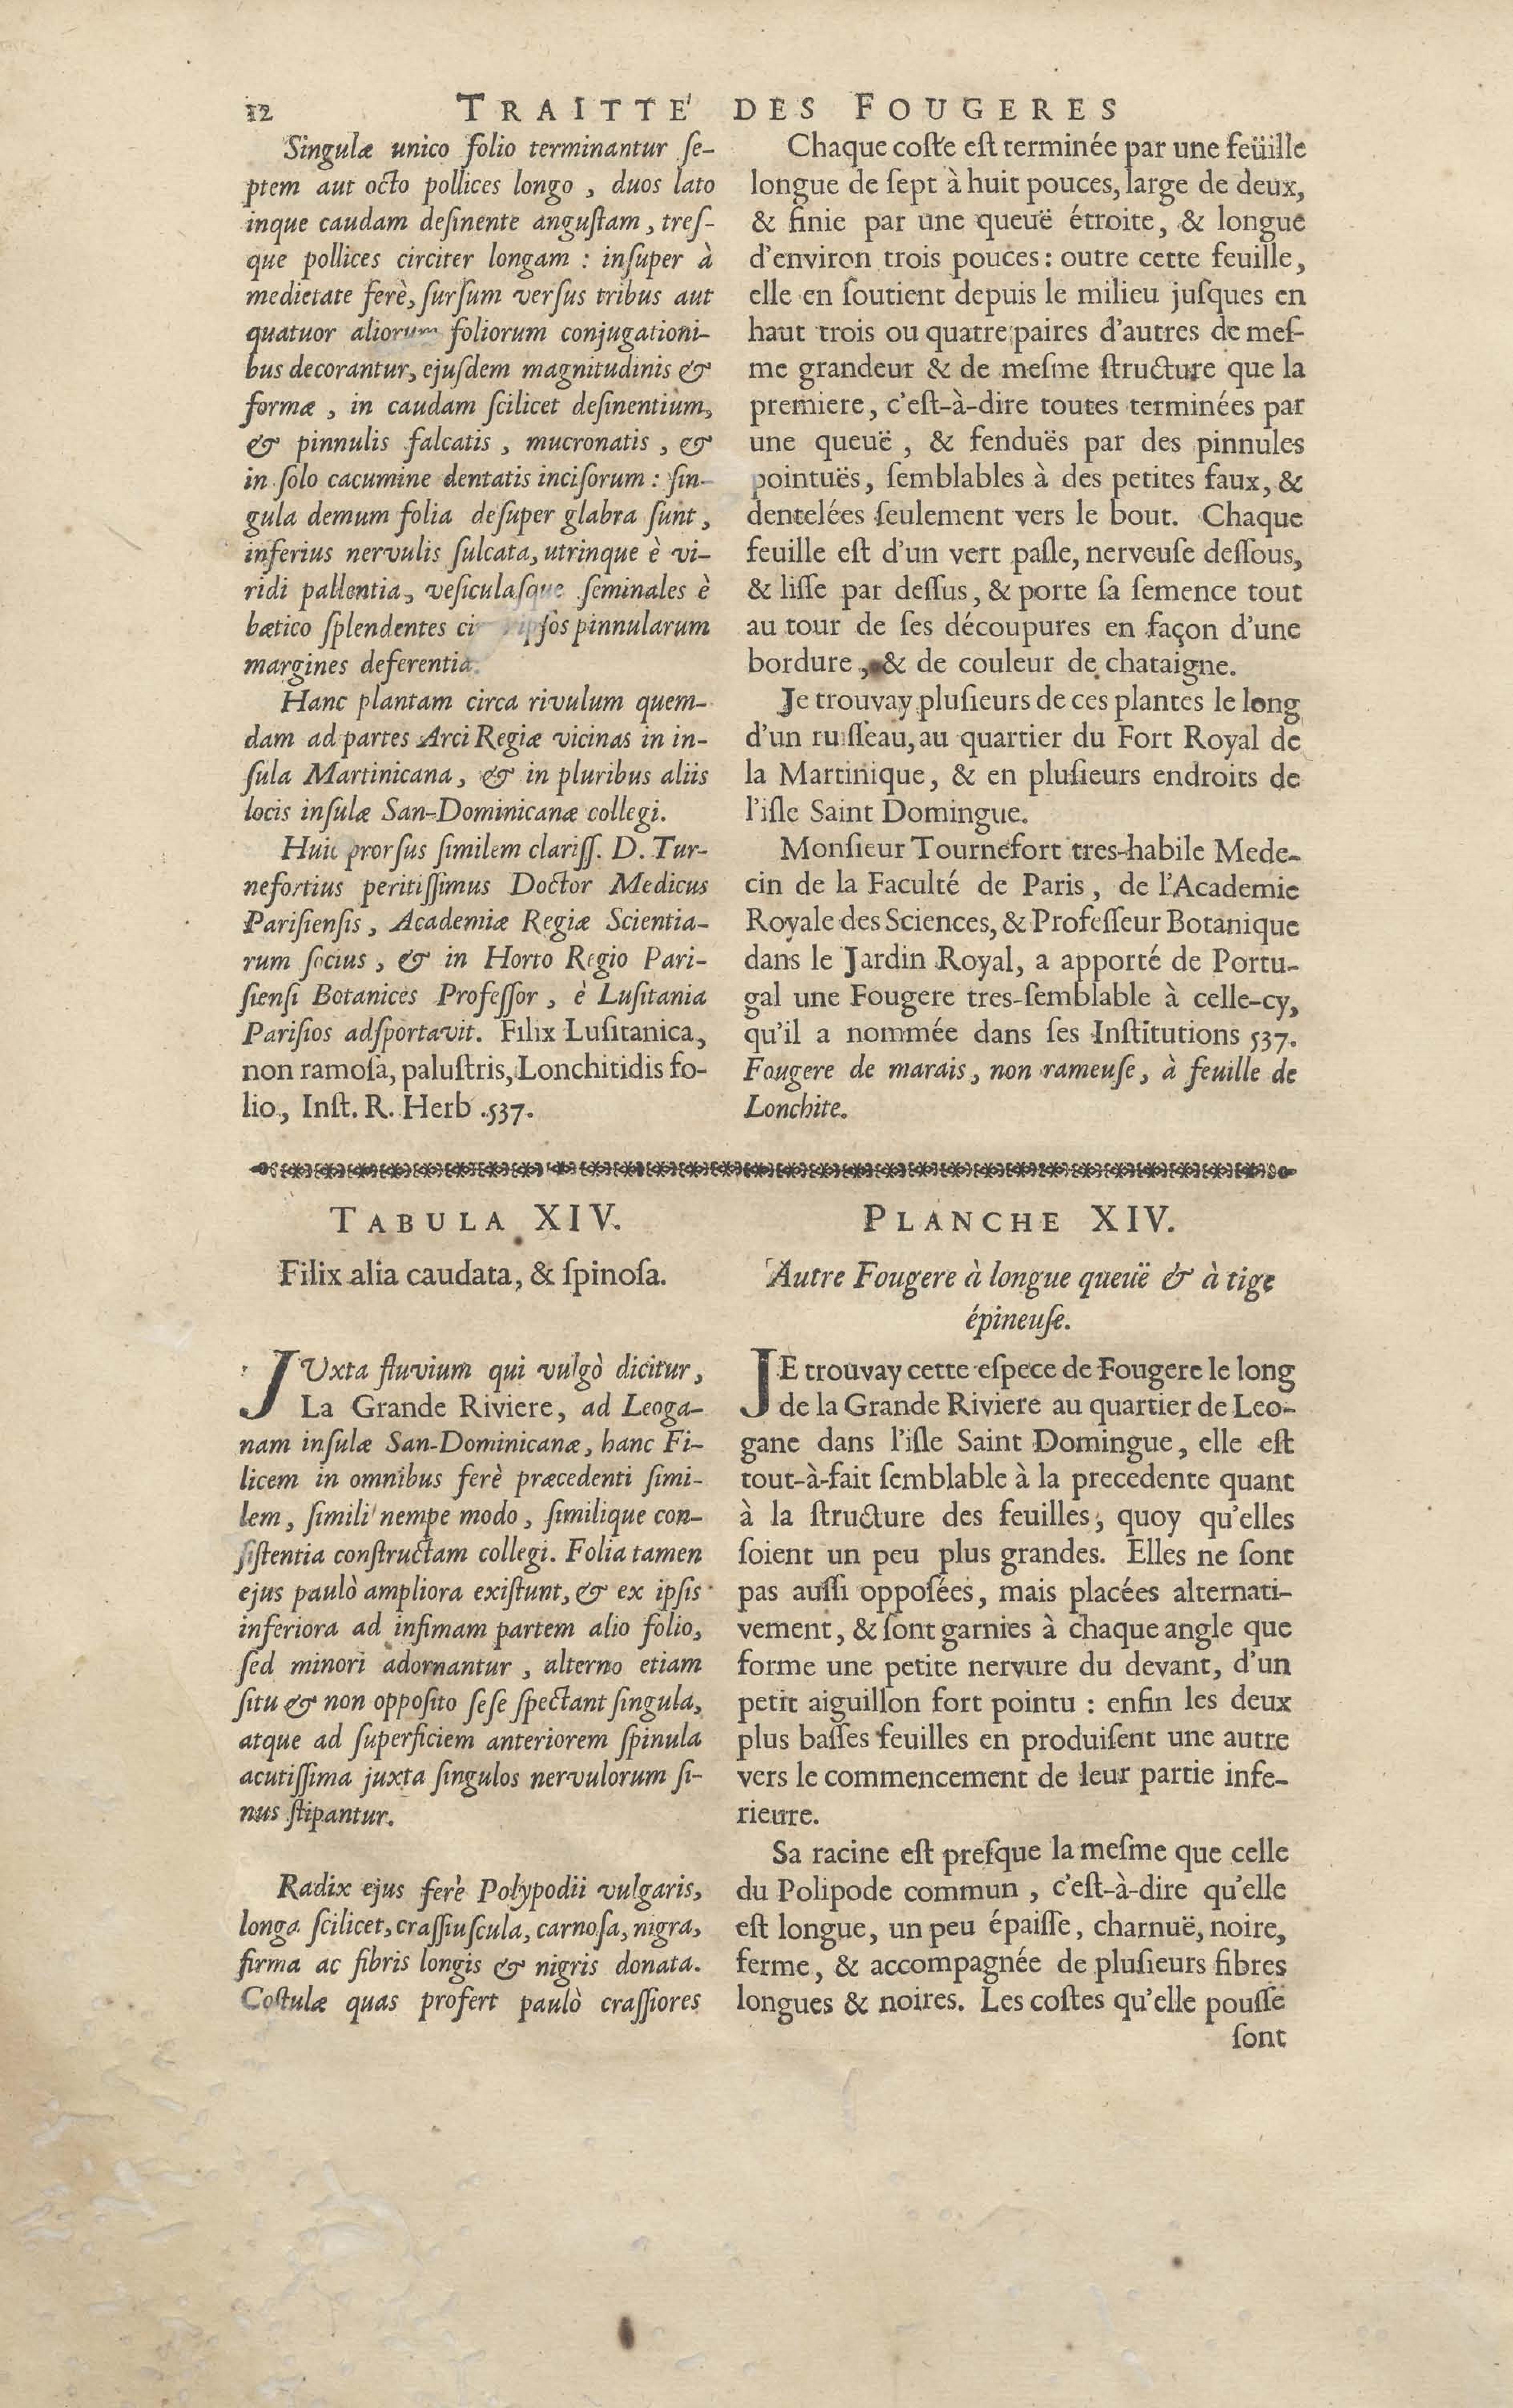 12 TRAITTE' DES FOUGERES
Singulæ unico folio terminantur ſe-
ptem aut octo pollices longo, duos lato
inque caudam deſinente anguſtam, treſ-
que pollices circiter longam : inſuper à
medietate ferè, ſurſum verſus tribus aut
quatuor aliorum foliorum conjugationi-
bus decorantur, ejuſdem magnitudinis &
formæ, in caudam ſcilicet deſinentium,
& pinnulis falcatis, mucronatis, &
in ſolo cacumine dentatis inciſorum : ſin-
gula demum folia deſuper glabra ſunt,
inferius nervulis ſulcata, utrinque è vi-
ridi pallentia, veſiculaſque ſeminales è
bætico ſplendentes ipſos pinnularum
margines deferentia.
Hanc plantam circa rivulum quem-
dam ad partes Arci Regiæ vicinas in in-
ſula Martinicana, & in pluribus aliis
locis inſulæ San-Dominicanæ collegi.
Huic prorſus ſimilem clariſſ. D. Tur-
nefortius peritiſſimus Doctor Medicus
Pariſienſis, Academiæ Regiæ Scientia-
rum ſocius, & in Horto Regio Pari-
ſienſi Botanices Profeſſor, è Luſitania
Pariſios adſportavit. Filix Luſitanica,
non ramoſa, paluſtris, Lonchitidis fo-
lio, Inſt. R. Herb .537.
Chaque coſte eſt terminée par une feüille
longue de ſept à huit pouces, large de deux,
& finie par une queuë étroite, & longue
d'environ trois pouces : outre cette feuille,
elle en ſoutient depuis le milieu juſques en
haut trois ou quatre paires d'autres de meſ-
me grandeur & de meſme ſtructure que la
premiere, c'eſt-à-dire toutes terminées par
une queuë, & fenduës par des pinnules
pointuës, ſemblables à des petites faux, &
dentelées ſeulement vers le bout. Chaque
feuille eſt d'un vert paſle, nerveuſe deſſous,
& liſſe par deſſus, & porte ſa ſemence tout
au tour de ſes découpures en façon d'une
bordure, & de couleur de chataigne.
Je trouvay pluſieurs de ces plantes le long
d'un ruiſſeau, au quartier du Fort Royal de
la Martinique, & en pluſieurs endroits de
l'iſle Saint Domingue.
Monſieur Tournefort tres-habile Mede-
cin de la Faculté de Paris, de l'Academie
Royale des Sciences, & Profeſſeur Botanique
dans le Jardin Royal, a apporté de Portu-
gal une Fougere tres-ſemblable à celle-cy,
qu'il a nommée dans ſes Inſtitutions 537.
Fougere de marais, non rameuſe, à feuille de
Lonchite.
TABULA XIV.
Filix alia caudata, & ſpinoſa.
JUxta fluvium qui vulgò dicitur,
La Grande Riviere, ad Leoga-
nam inſulæ San-Dominicanæ, hanc Fi-
licem in omnibus ferè præcedenti ſimi-
lem, ſimili nempe modo, ſimilique con-
ſiſtentia conſtructam collegi. Folia tamen
ejus paulò ampliora exiſtunt, & ex ipſis
inferiora ad infimam partem alio folio,
ſed minori adornantur, alterno etiam
ſitu & non oppoſito ſeſe ſpectant ſingula,
atque ad ſuperficiem anteriorem ſpinula
acutiſſima juxta ſingulos nervulorum ſi-
nus ſtipantur.
Radix ejus ferè Polypodii vulgaris,
longa ſcilicet, craſſiuſcula, carnoſa, nigra,
firma ac fibris longis & nigris donata.
Coſtulæ quas profert paulò craſſiores
PLANCHE XIV.
Autre Fougere à longue queuë & à tige
épineuſe.
JE trouvay cette eſpece de Fougere le long
de la Grande Riviere au quartier de Leo-
gane dans l'iſle Saint Domingue, elle eſt
tout-à-fait ſemblable à la precedente quant
à la ſtructure des feuilles, quoy qu'elles
ſoient un peu plus grandes. Elles ne ſont
pas auſſi oppoſées, mais placées alternati-
vement, & ſont garnies à chaque angle que
forme une petite nervure du devant, d'un
petit aiguillon fort pointu : enfin les deux
plus baſſes feuilles en produiſent une autre
vers le commencement de leur partie infe-
rieure.
Sa racine eſt preſque la meſme que celle
du Polipode commun, c'eſt-à-dire qu'elle
eſt longue, un peu épaiſſe, charnuë, noire,
ferme, & accompagnée de pluſieurs fibres
longues & noires. Les coſtes qu'elle pouſſe
ſont